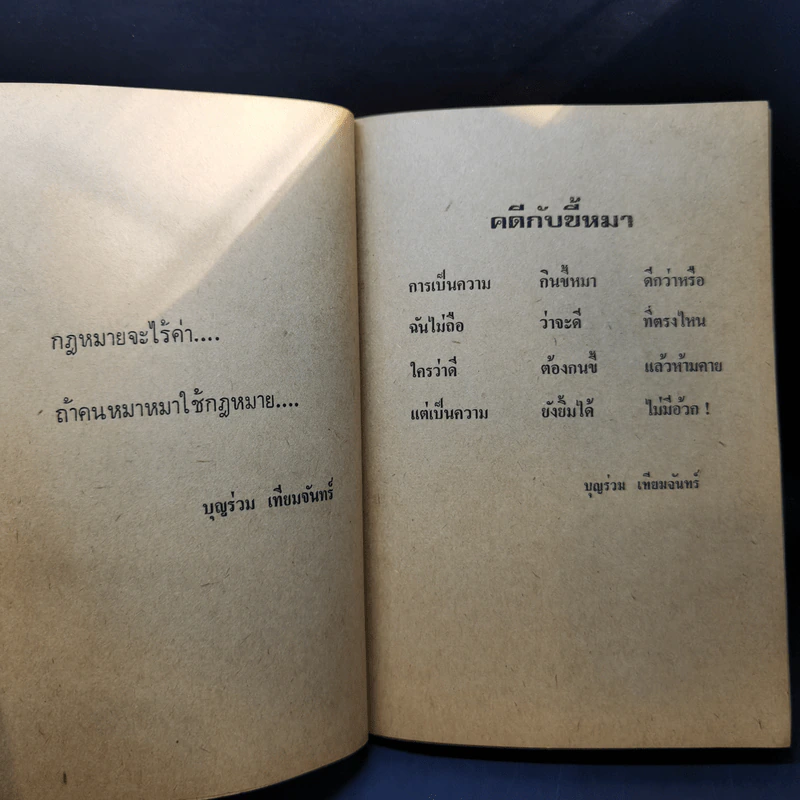 กฎหมายจะไร้ค่า....
ถ้าคนหมาหมาใช้กฎหมาย....
บุญร่วม เทียมจันทร์
คดีกับขี้หมา
การเป็นความ กินขี้หมา ดีกว่าหรือ
ฉันไม่ถือ ว่าจะดี ที่ตรงไหน
ใครว่าดี ต้องกนขี้ แล้วห้ามคาย
แต่เป็นความ ยังยิ้มได้ ไม่มีอ้วก !
บุญร่วม เทียมจันทร์